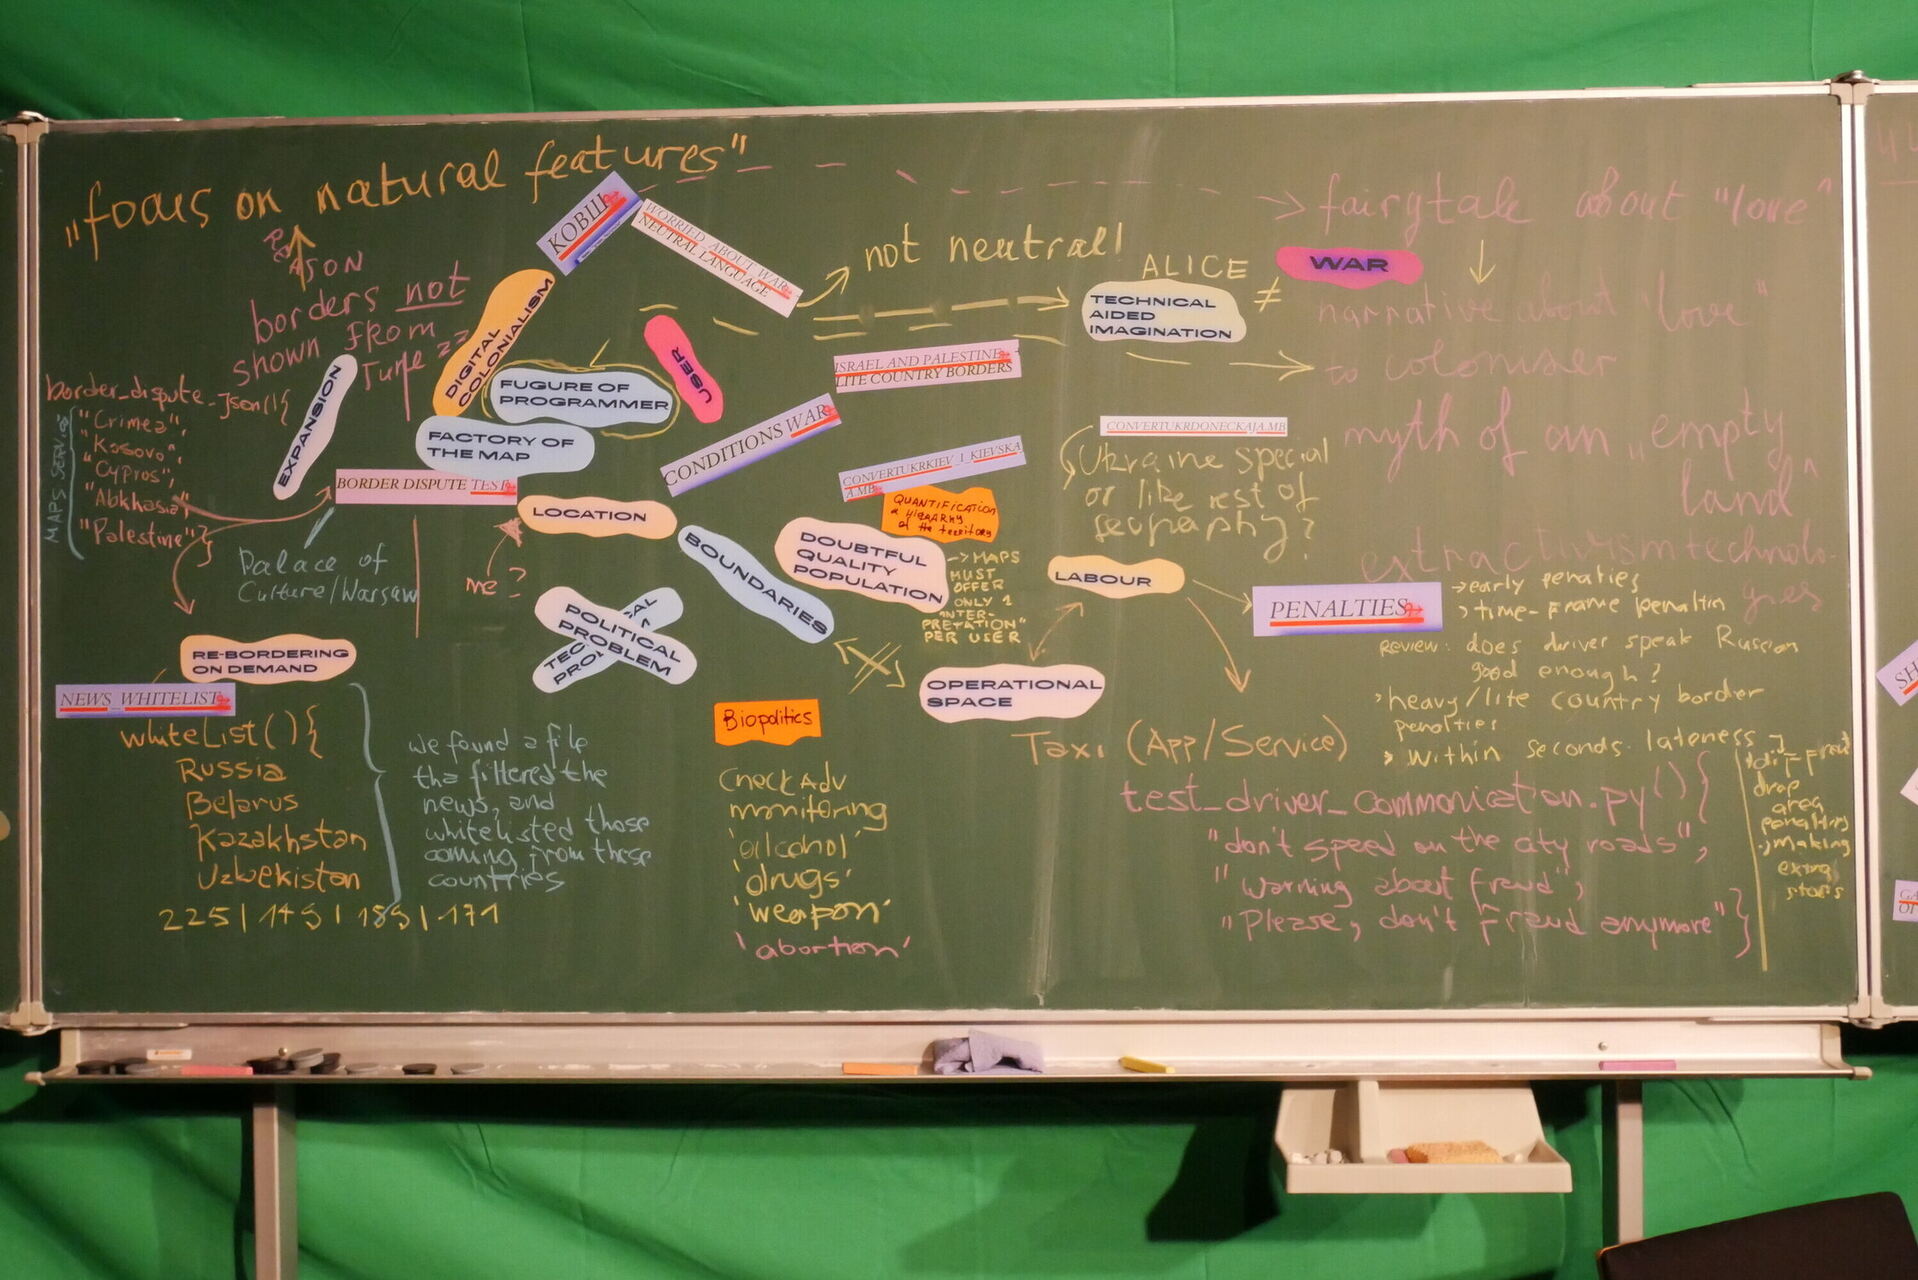 "focus on natural features"
REASON
borders not
shown from
June 22
КОВШ
WORRIED_ABOUT_WAR
NEUTRAL LANGUAGE
not neutral!
fairytale about "love"
WAR
narrative about "love"
to coloniser
myth of an "empty
land"
extractivism technolo-
gies
ALICE ≠
TECHNICAL
AIDED
IMAGINATION
DIGITAL
COLONIALISM
USER
FUGURE OF
PROGRAMMER
FACTORY OF
THE MAP
EXPANSION
ISRAEL AND PALESTINE
LITE COUNTRY BORDERS
CONDITIONS WAR
CONVERTUKRDONECKAJA.MB
CONVERTUKRKIEV_I_KIEVSKA
A.MB
Ukraine special
or like rest of
geography?
border_dispute_json(){
MAPS SERV.CO
"Crimea",
"Kosovo",
"Cypros",
"Abkhasia",
"Palestine"}
BORDER DISPUTE TEST
Palace of
Culture/Warsaw
LOCATION
me?
BOUNDARIES
QUANTIFICATION
of the territory
DOUBTFUL
QUALITY
POPULATION
-> MAPS
MUST
OFFER
ONLY 1
"INTER-
PRETATION"
PER USER
POLITICAL
PROBLEM
LABOUR
PENALTIES
early penalties
time-frame penaltin
review: does driver speak Russian
good enough?
heavy/lite country border
penalties
within seconds lateness
drop
area
penalties
making
extra
stops
OPERATIONAL
SPACE
Taxi (App/Service)
test_driver_communication.py(){
"don't speed on the city roads",
"warning about fraud",
"Please, don't fraud anymore"}
RE-BORDERING
ON DEMAND
NEWS_WHITELIST
whiteList(){
Russia
Belarus
Kazakhstan
Uzbekistan
225|149|159|171
we found a file
tha filtered the
news, and
whitelisted those
coming from these
countries
Biopolitics
CheckAdv
monitoring
'alcohol'
'drugs'
'weapon'
'abortion'